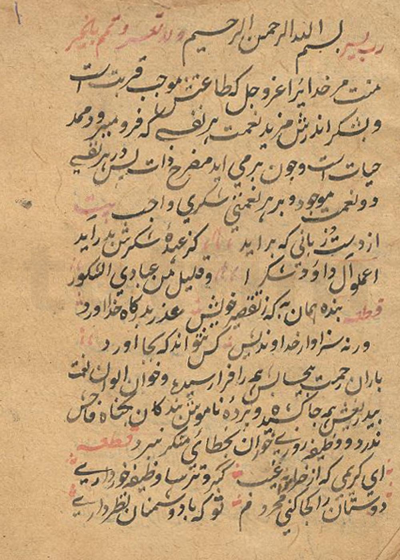 رب یسر بسم الله الرحمن الرحیم ولا تعسر و تمم بالخیر
منت مر خدایرا عز و جل که طاعتش موجب قربت است
و بشکر اندرش مزید نعمت هر نفسی که فرو میرود ممد
حیات است و چون بر می آید مفرح ذات پس در هر نفسی
دو نعمت موجود و بر هر نعمتی شکری واجب بیت
از دست و زبانی که بر اید کز عهده شکرش بدر اید
اعملوا آل داود شکرا و قلیل من عبادی الشکور
قطعه بنده همان به که ز تقصیر خویش عذر بدرگاه خدا اورد
ورنه سزاوار خداوندیش کس نتواند که بجا اورد
باران رحمت بیحسابش همه را فرا رسیده و خوان الوان نعمت
بیدریغش همه جا کشیده و پرده ناموس بندکان بکناه فاحش
ندرد و وظیفه روزی خواران بخطای منکر نبرد قطعه
ای کریمی که از خزانه غیب کبر و ترسا وظیفه خور داری
دوستان را کجا کنی محروم تو که با دشمنان نظر داری